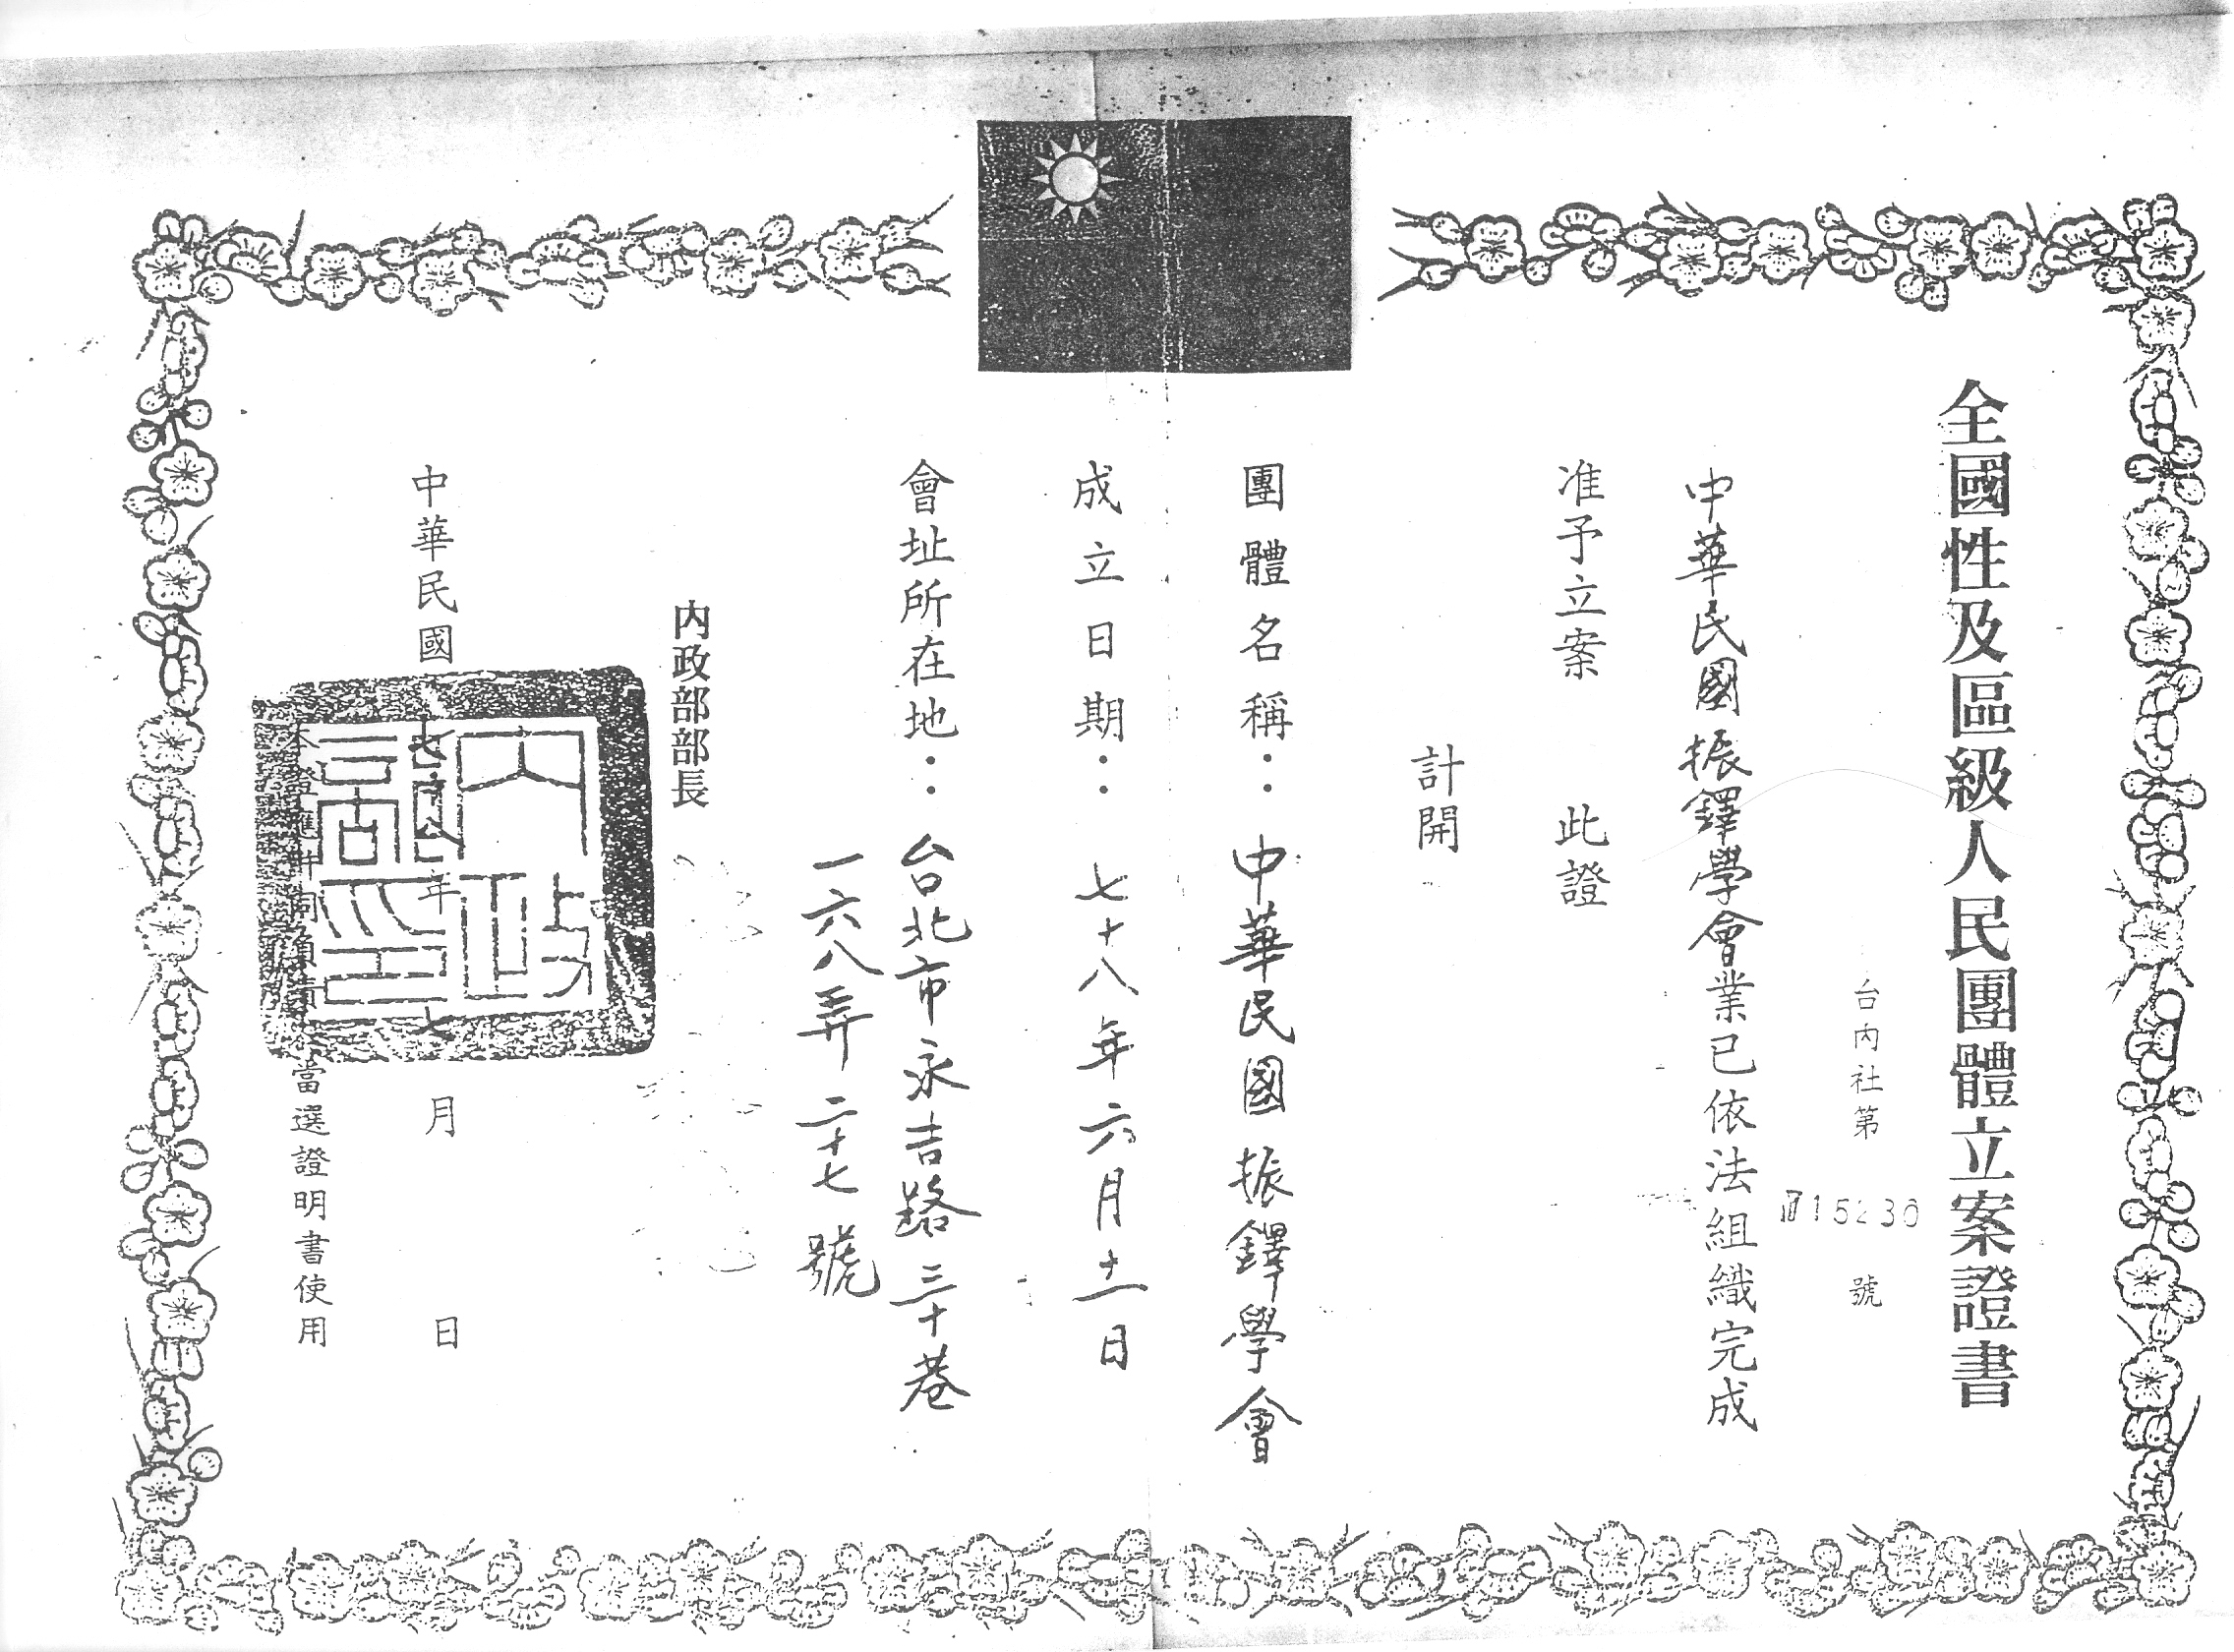 全國性及區級人民團體立案證書
台內社第 715230 號
中華民國振鐸學會業已依法組織完成
准予立案 此證
計開
團體名稱：中華民國振鐸學會
成立日期：七十八年六月十一日
會址所在地：台北市永吉路三十巷
一六八弄二十七號
內政部部長
中華民國七十八年七月 日
本證應併同負責人當選證明書使用
內政部印